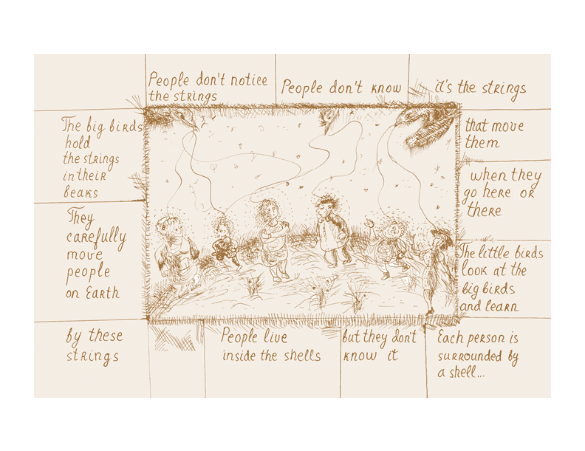 People don't notice
the strings
People don't know
it's the strings
that move
them
when they
go here or
there
The little birds
look at the
big birds
and learn
Each person is
surrounded by
a shell...
but they don't
know it
People live
inside the shells
by these
strings
They
carefully
move
people
on Earth
The big birds
hold
the strings
in their
beaks